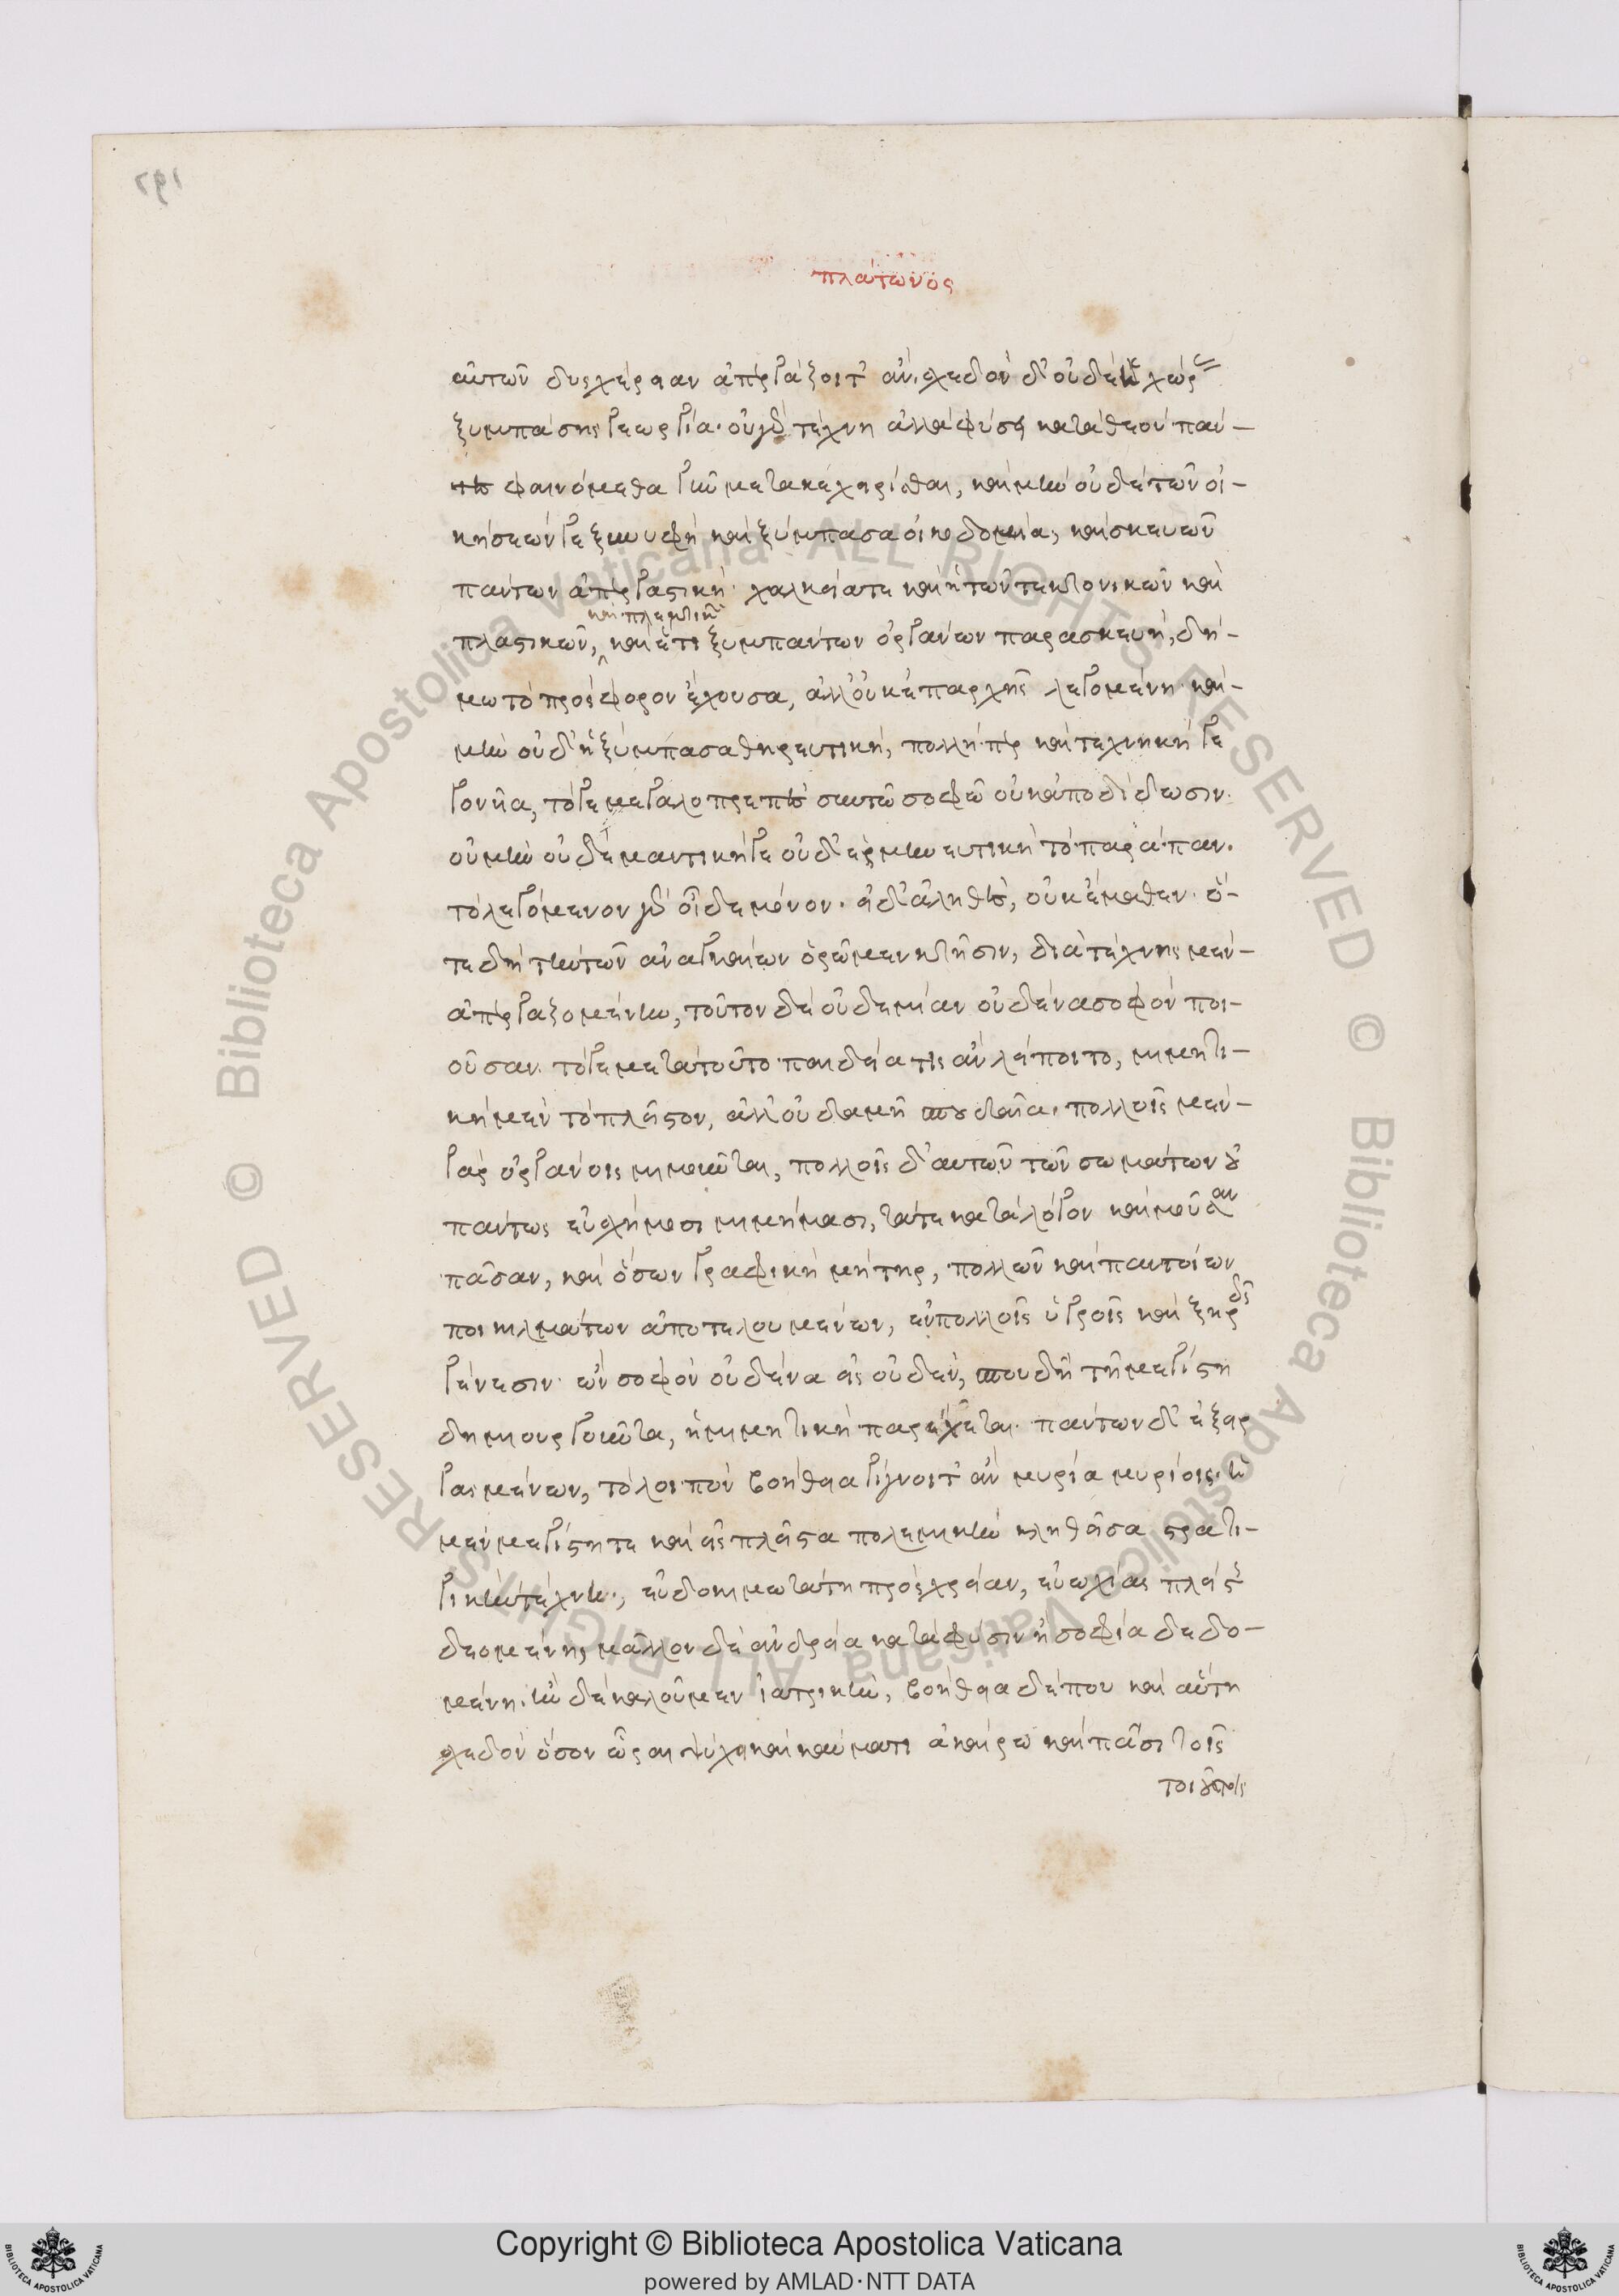 πλάτωνος
αὐτῶν δυσχέρειαν ἀπεργάζοιτ' ἄν. σχεδὸν δ' οὐδὲ χώρας
ξυμπάσης γεωργία· οὐ γὰρ τέχνη ἀλλὰ φύσει κατὰ θεὸν πάν-
τες φαινόμεθα γῆν μετακεχειρίσθαι, καὶ μὴν οὐδὲ τῶν οἰ-
κήσεών γε ξυνυφὴ καὶ ξύμπασα οἰκοδομία, καὶ σκευῶν
πάντων ἀπεργαστικὴ χαλκεία τε καὶ ἡ τῶν τεκτονικῶν καὶ
καὶ πλεκτικῶν
πλαστικῶν, καὶ ἔτι ξυμπάντων ὀργάνων παρασκευή, δή-
μω τὸ πρόσφορον ἔχουσα, ἀλλ' οὐκ ἐπ' ἀρετῆς λεγομένη· καὶ
μὴν οὐδ' ἡ ξύμπασα θηρευτική, πολλή περ καὶ τεχνικὴ γε
γονεῖα, τό γε μεγαλοπρεπὲς σὺν τῶ σοφῶ οὐκ ἀποδίδωσιν.
οὐ μὴν οὐδὲ μαντική γε οὐδ' ἑρμηνευτικὴ τὸ παράπαν.
τὸ λεγόμενον γὰρ οἶδε μόνον. εἰ δ' ἀληθές, οὐκ ἔμαθεν. ὅ-
τε δὴ τὴν τῶν ἀναγκαίων ὁρῶμεν κτῆσιν, διὰ τέχνης μὲν
ἀπεργαζομένην, τούτων δὲ οὐδεμίαν οὐδένα σοφὸν ποι-
οῦσαν. τό γε μετὰ τοῦτο παιδιά τις ἂν λείποιτο, μιμητι-
κὴ μὲν τὸ πλεῖστον, ἀλλ' οὐδαμῆ σπουδαία. πολλοῖς μὲν
γὰρ ὀργάνοις μιμοῦνται, πολλοῖς δ' αὐτῶν τῶν σωμάτων οὐ
πάντως εὐσχήμοσι μιμήμασι, τά τε κατὰ λόγον καὶ μοῦσαν
πᾶσαν, καὶ ὅσων γραφικὴ μήτηρ, πολλῶν καὶ παντοίων
ποικιλμάτων ἀποτελουμένων, ἐν πολλοῖς ὑγροῖς καὶ ξηροῖς
γένεσιν· ὧν σοφὸν οὐδένα εἰς οὐδέν, σπουδῆ τῆ μεγίστη
δημιουργοῦντα, ἡ μιμητικὴ παρέχεται. πάντων δ' ἐξειρ
γασμένων, τὸ λοιπὸν βοήθεια γίγνοιτ' ἂν μυρία μυρίοις. ἡ
μὲν μεγίστη τε καὶ εἰς πλεῖστα πολεμικὴ κληθεῖσα στρατη-
γικὴ τέχνη, εὐδοκιμωτάτη πρὸς χρείαν, εὐτυχίας πλείστης
δεομένη, μᾶλλον δὲ ἀνδρεία κατὰ φύσιν ἢ σοφία δεδο-
μένη. ἣν δὲ καλοῦμεν ἰατρικήν, βοήθεια δέ που καὶ αὕτη
σχεδὸν ὅσων ὧραι ψύχει καὶ καύματι ἀκαίρω καὶ πᾶσι τοῖς
τοιούτοις